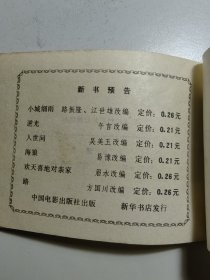 新书预告
小城细雨 路振隆、江世雄改编 定价：0.26元
逆光 午言改编 定价：0.21元
人世间 吴美玉改编 定价：0.21元
海狼 易谏改编 定价：0.21元
欢天喜地对亲家 君水改编 定价：0.26元
路 方国川改编 定价：0.26元
中国电影出版社出版 新华书店发行